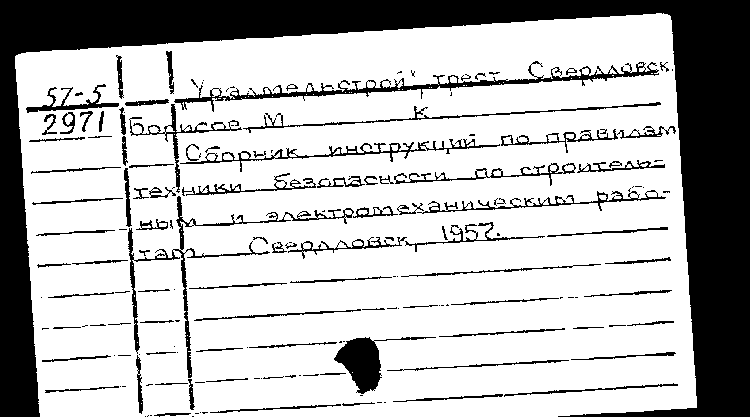 57-5 "Уралмельстрой", трест. Свердловск.
2971 Борисов, М К
Сборник инструкций по правилам
техники безопасности по строитель-
ным и электромеханическим рабо-
там. Свердловск, 1957.